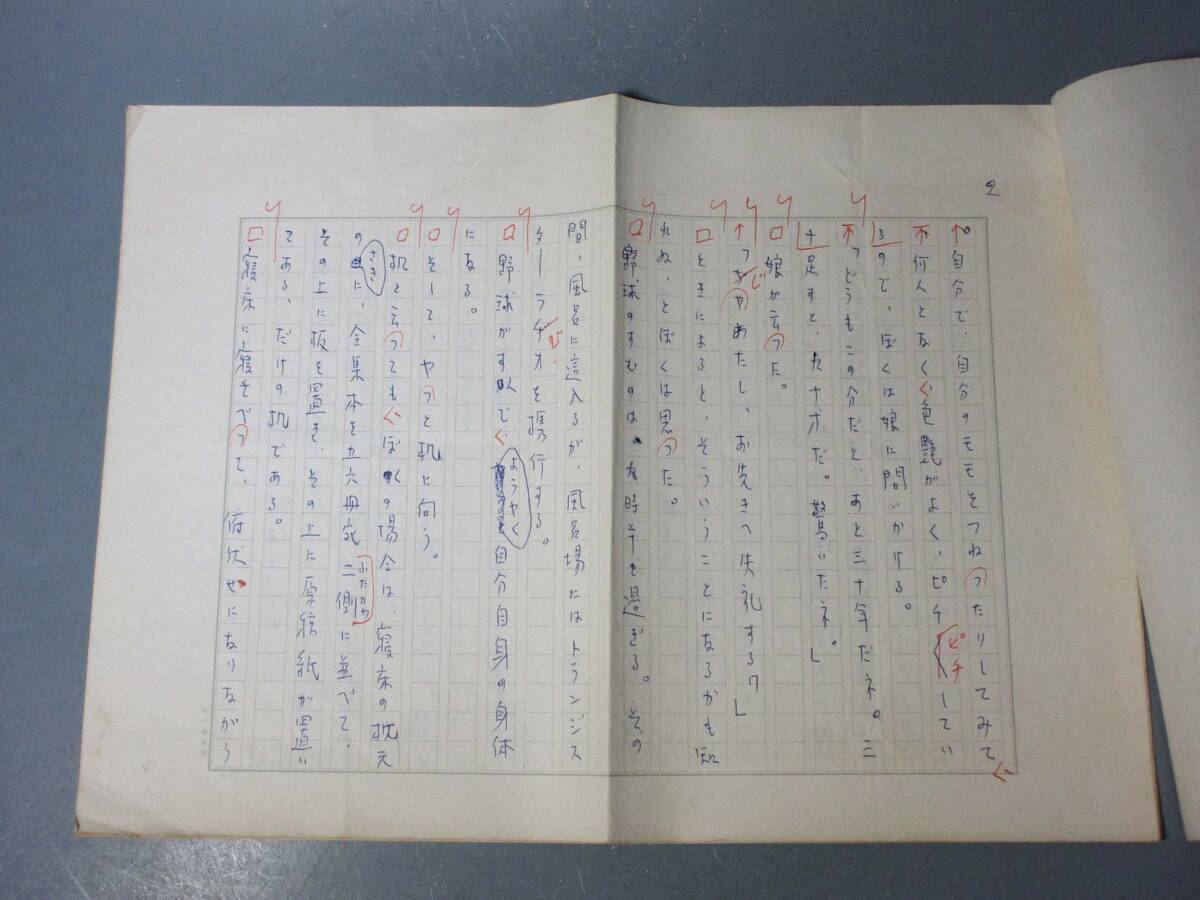 2
自分で、自分のモモをつねったりしてみて
何人となく色艶がよく、ピチピチしてい
るので、ぼくは娘に問いかける。
「どうもこの分だと、あと三十年だネ。三
十足すと、九十才だ。驚いたネ。」
娘が云った。
「じゃあたし、お先きへ失礼するワ」
ときによると、そういうことになるかも知
れぬ、とぼくは思った。
野球のすむのは、九時半を過ぎる。その
間、風呂に這入るが、風呂場にはトランジス
ターラヂオを携行する。
野球がすんで、ようやく自分自身の身体
になる。
そして、やっと机に向う。
机と云っても、ぼくの場合は、寝床の枕元
のさきに、全集本を五六冊宛二側に並べて、
ふたかわ
その上に板を置き、その上に原稿紙が置い
てある、だけの机である。
寝床に寝そべって、俯伏せになりながら